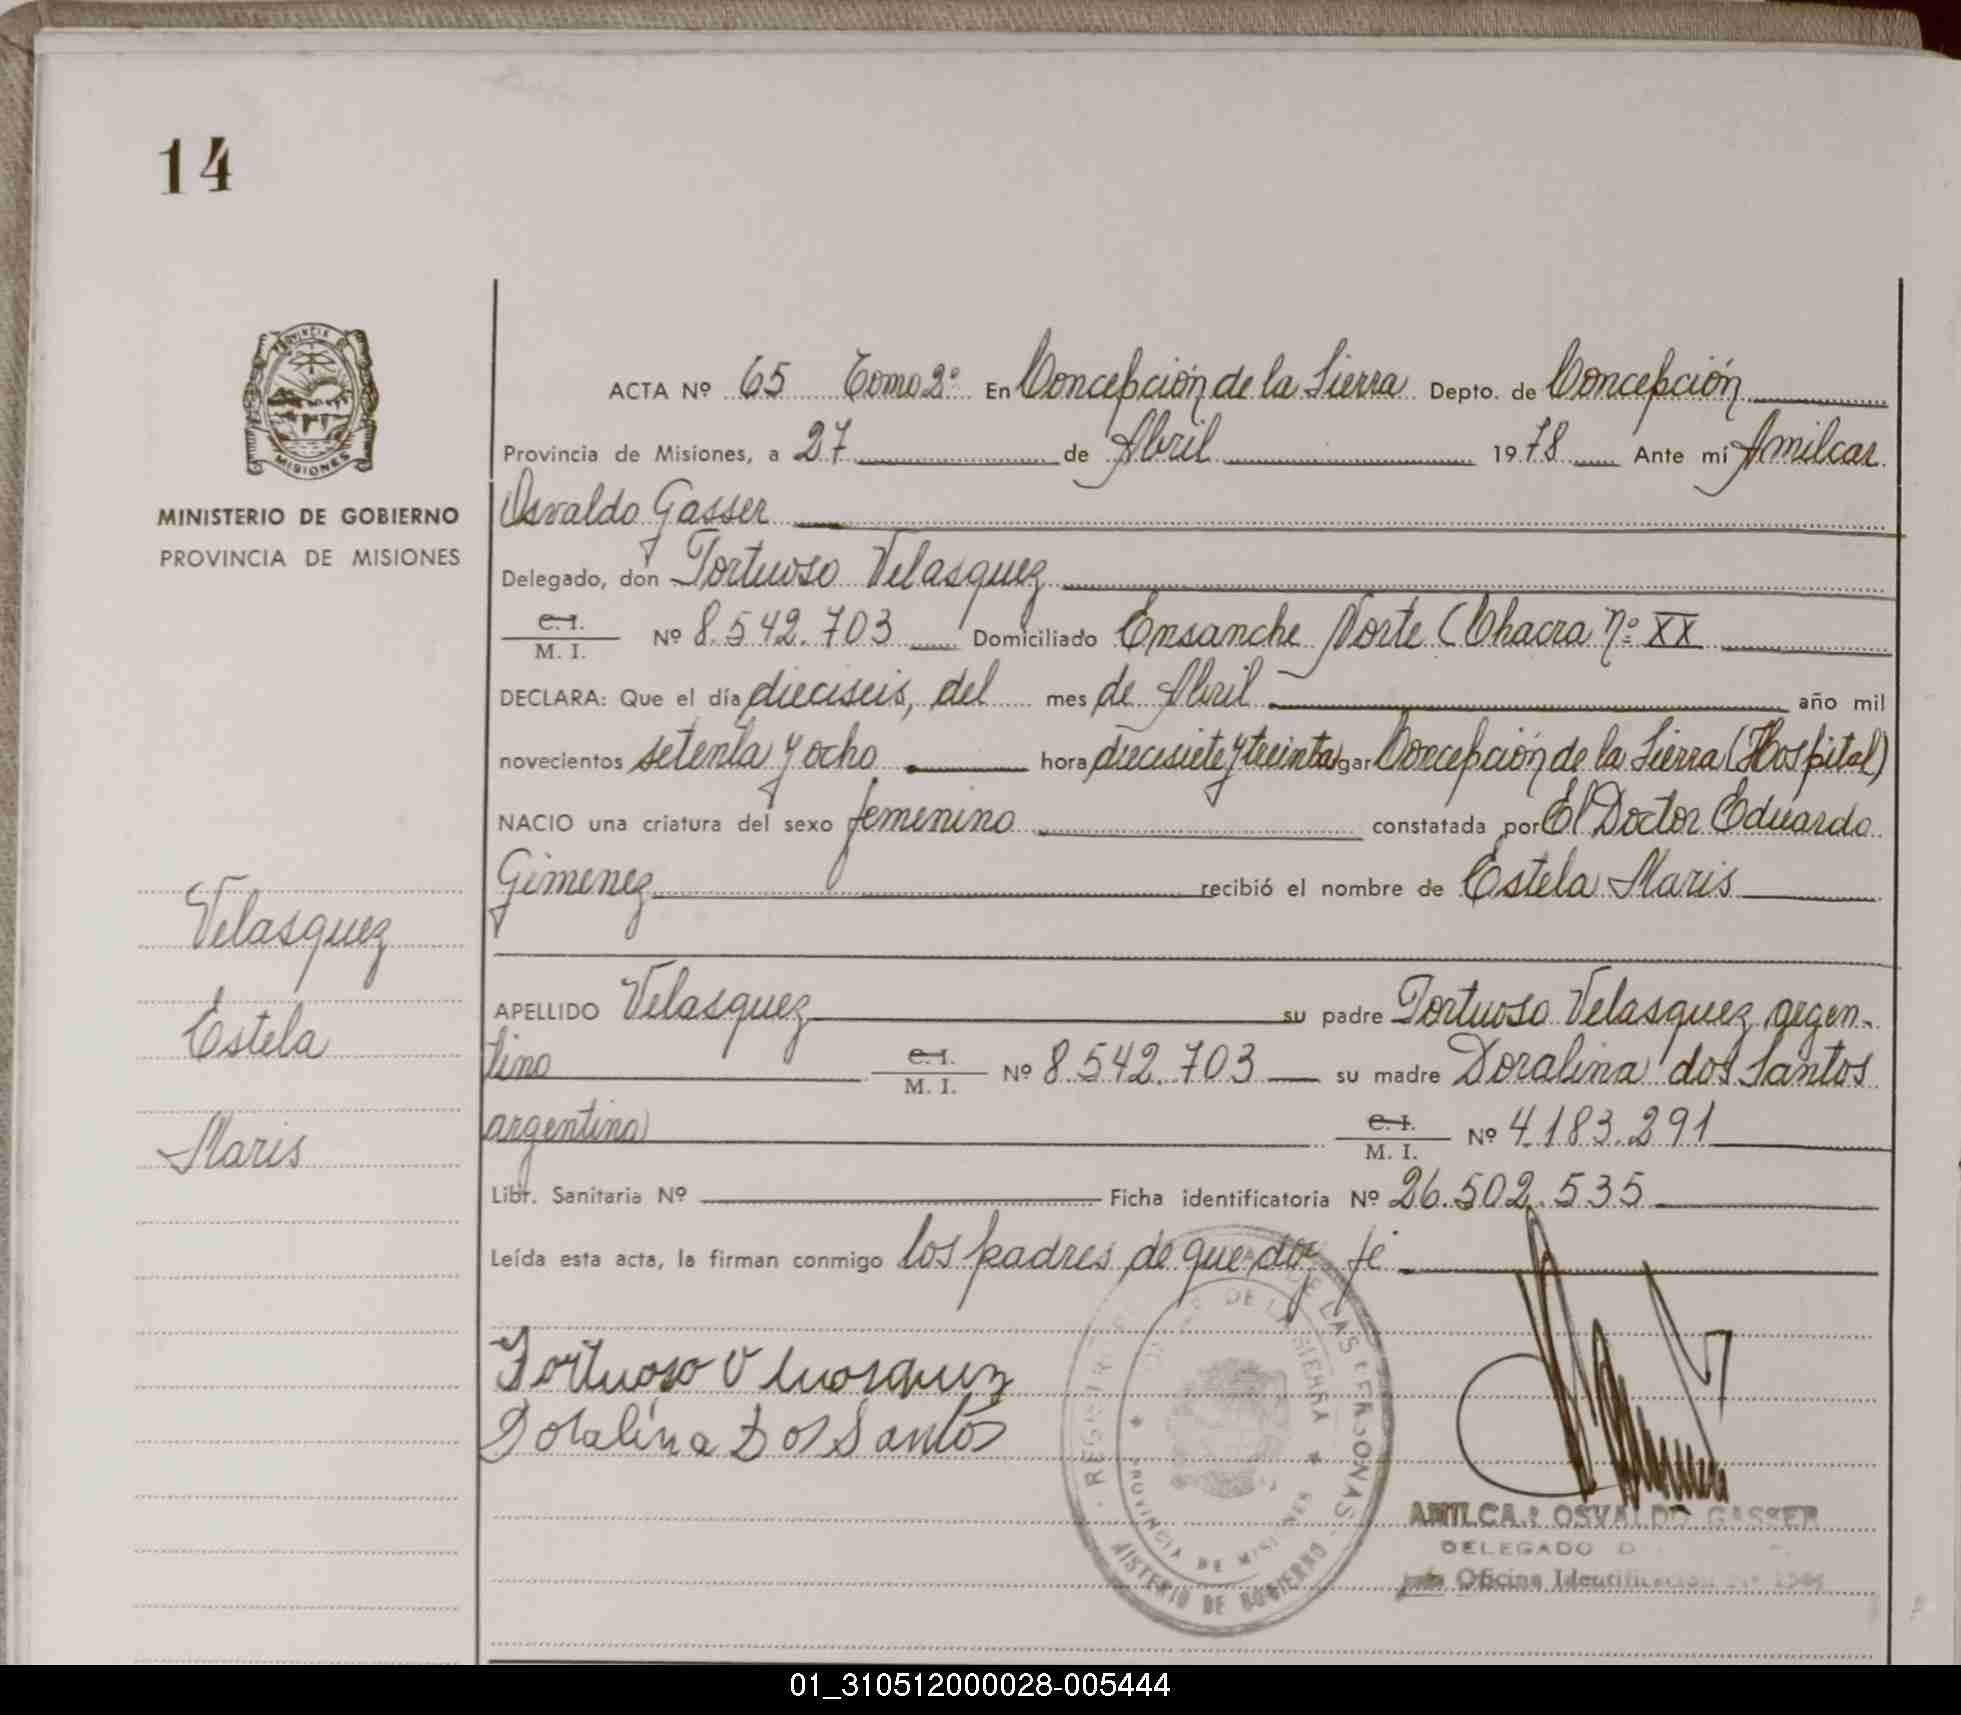 14
PROVINCIA DE
MISIONES
MINISTERIO DE GOBIERNO
PROVINCIA DE MISIONES
ACTA Nº 65 Tomo 2º En Concepción de la Sierra Depto. de Concepción
Provincia de Misiones, a 27 de Abril 1978 Ante mí Amilcar
Osvaldo Gasser
Delegado, don Tortuoso Velasquez
C. I.
M. I. Nº 8.542.703 Domiciliado Ensanche Norte (Chacra nº XX
DECLARA: Que el día dieciseis, del mes de Abril año mil
novecientos setenta y ocho hora diecisiete y treinta gar Concepción de la Sierra (Hospital)
NACIO una criatura del sexo femenino constatada por El Doctor Eduardo
Gimenez recibió el nombre de Estela Maris
Velasquez
Estela
Maris
APELLIDO Velasquez su padre Tortuoso Velasquez argen-
tino C. I. M. I. Nº 8.542.703 su madre Doralina dos Santos
argentina C. I. M. I. Nº 4.183.291
Libr. Sanitaria Nº Ficha identificatoria Nº 26.502.535
Leída esta acta, la firman conmigo los padres de que doy fé
Doralina Dos Santos
REGISTRO DE LAS PERSONAS
DE LA SIERRA
PROVINCIA DE MISIONES
MINISTERIO DE GOBIERNO
AMILCAR OSVALDO GASSER
DELEGADO
Oficina Identificación
01_310512000028-005444